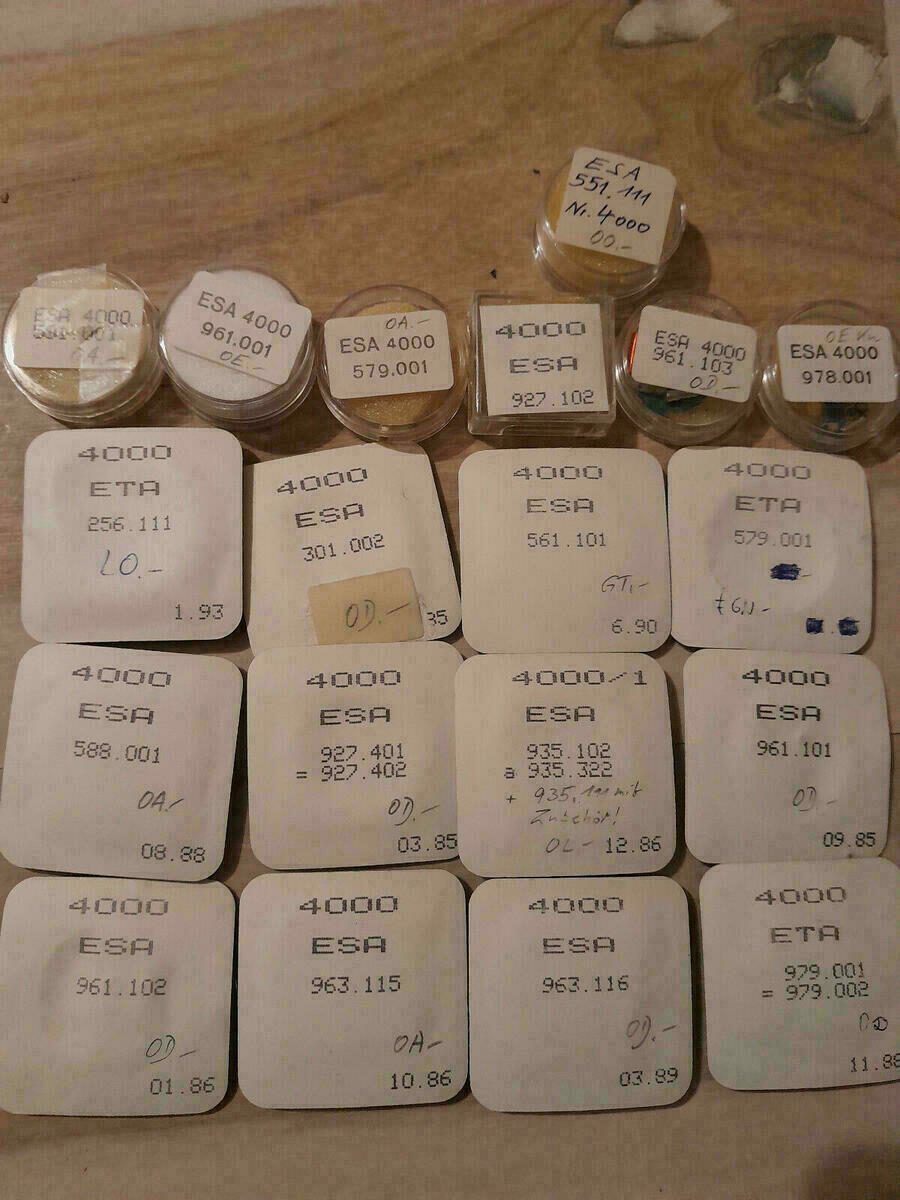 ESA
551.111
Nr. 4000
OO.-
ESA 4000
581.001
OA.-
ESA 4000
961.001
OE.-
OA.-
ESA 4000
579.001
4000
ESA
927.102
ESA 4000
961.103
OD.-
OE
ESA 4000
978.001
4000
ETA
256.111
LO.-
1.93
4000
ESA
301.002
OD.-
85
4000
ESA
561.101
GT.-
6.90
4000
ETA
579.001
4000
ESA
588.001
OA.-
08.88
4000
ESA
927.401
= 927.402
OD.-
03.85
4000/1
ESA
935.102
a 935.322
+ 935,111 mit
Zubehör!
OL- 12.86
4000
ESA
961.101
OD.-
09.85
4000
ESA
961.102
OD.-
01.86
4000
ESA
963.115
OA-
10.86
4000
ESA
963.116
OD.-
03.89
4000
ETA
979.001
= 979.002
OD
11.88